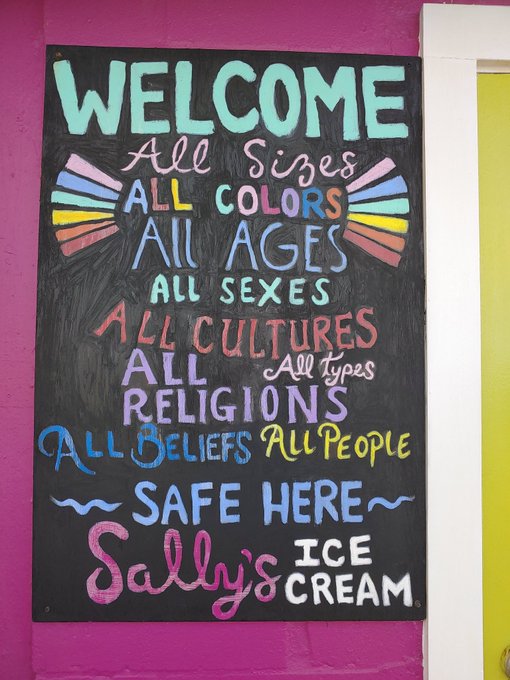 WELCOME
All Sizes
ALL COLORS
All AGES
ALL SEXES
ALL CULTURES
ALL All types
RELIGIONS
ALL BELIEFS ALL PEOPLE
~ SAFE HERE ~
Sally's ICE CREAM